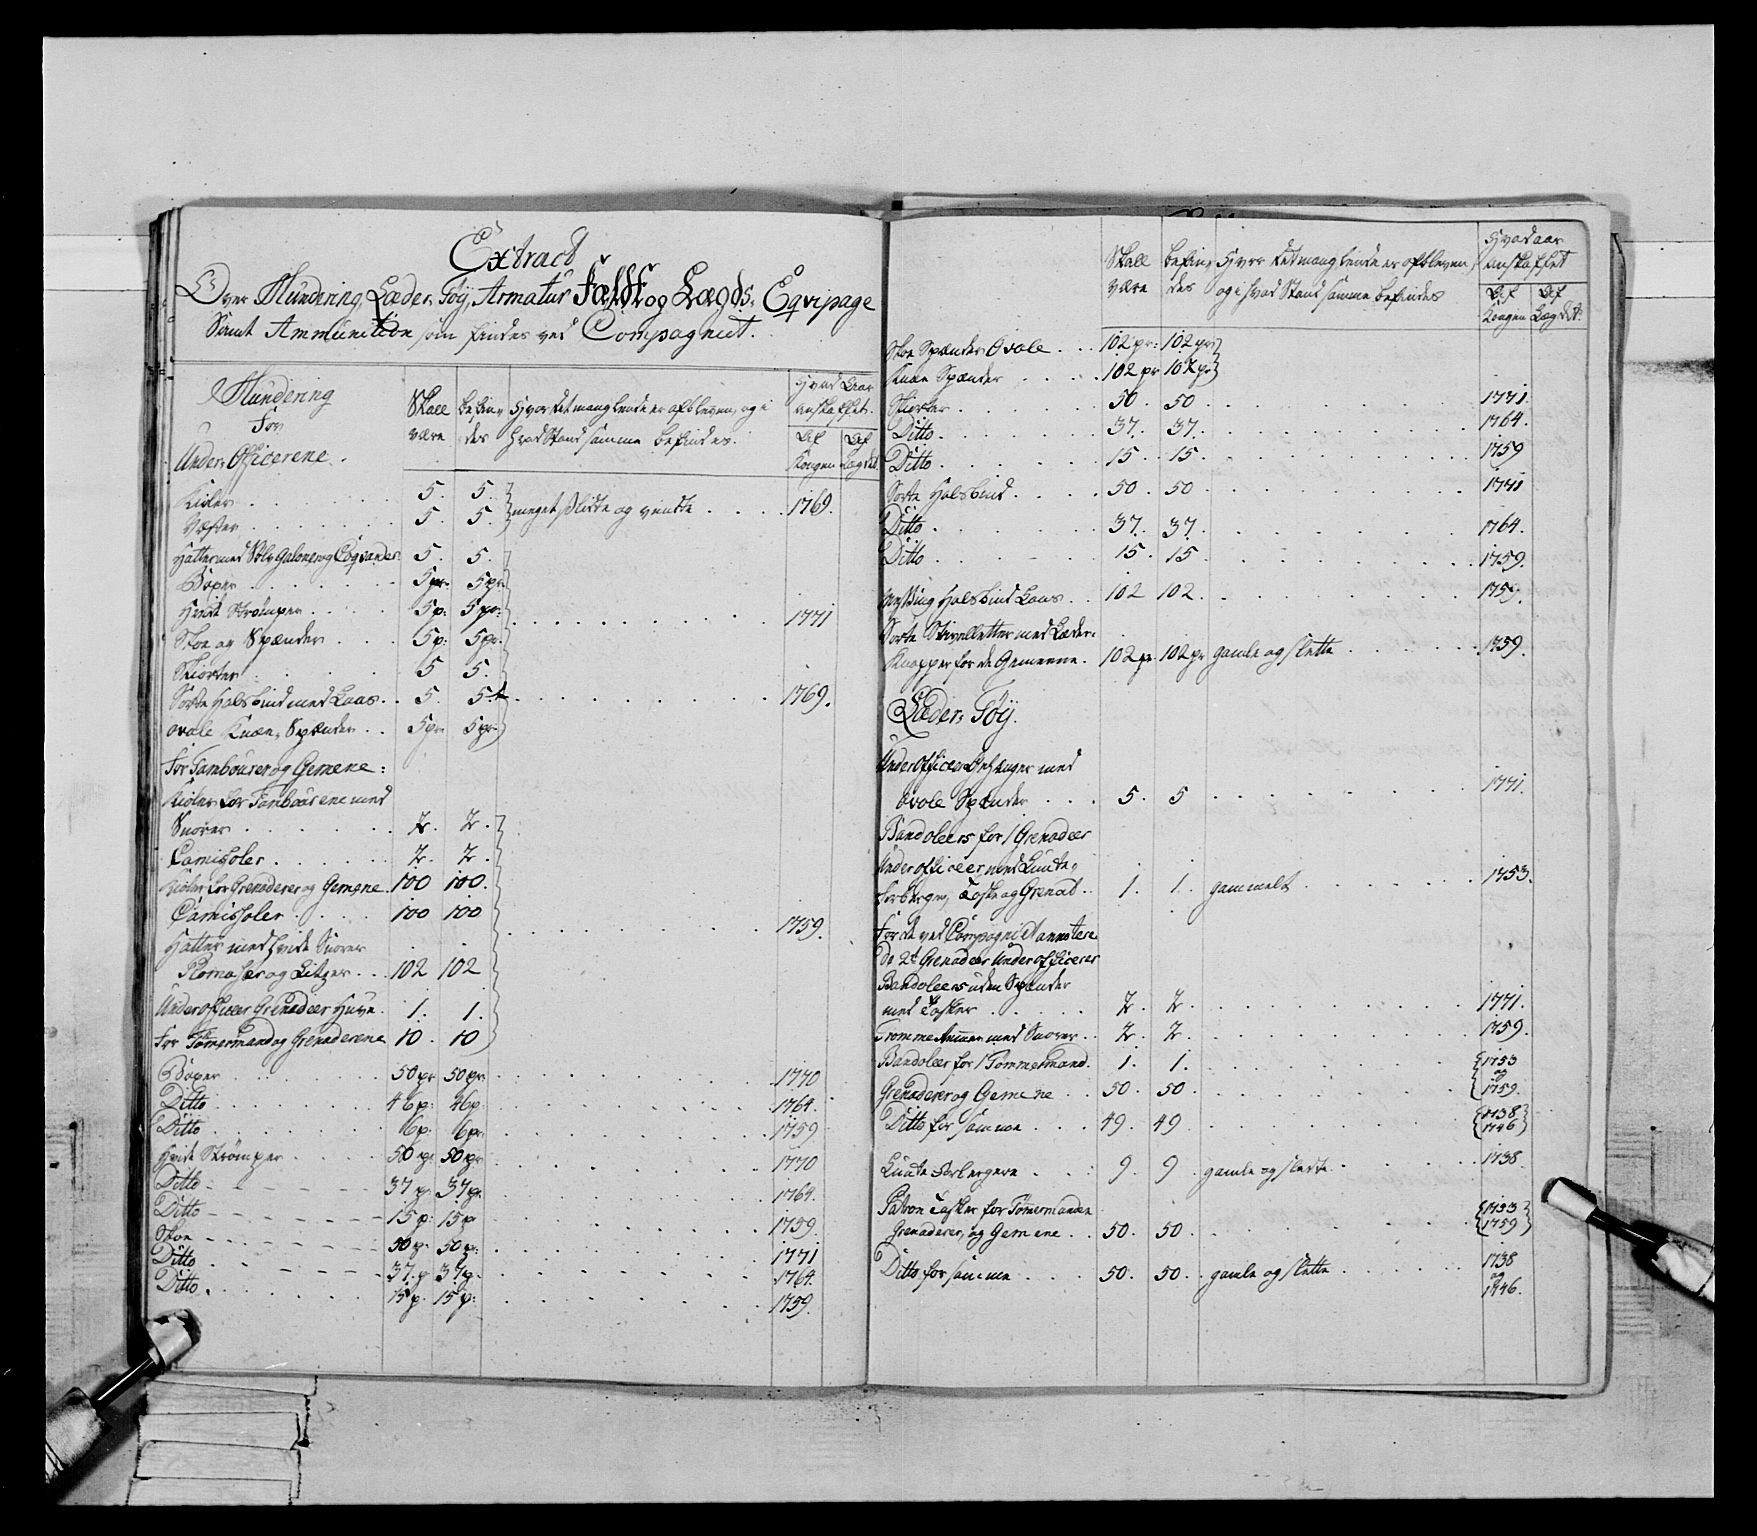 Extract
Over Mundering, Læder, Töy, Armatur Feldt og Lægds, Eqvipage
Samt Ammunition som findes ved Compagniet.
Mundering
for
Under Officerene.
Skall være
befin, des
Hvor det manglende er afbleven, og i
hvad Stand samme befindes.
Hvad Aar
anskaffet.
Af Kongen
Af Lægdet
Kioler . . . 5. 5.
Vester . . . 5. 5. meget slidte og vendte . . . 1769.
Hatter med Sölv Galoner og Coqvarder 5. 5.
Boxer . . . 5 pr. 5 pr.
Hvide Strömper . . . 5 p: 5 pr: . . . 1771
Skoe og Spænder . . . 5 p: 5 pr.
Skiorter . . . 5 5.
Sorte Halsbind med Laas . . 5. 5. . . . 1769.
ovale Knæe, Spænder . . 5 pr. 5 pr.
For Tambourer og Gemene:
Kioler for Tambourene med
Snorer . . . 2. 2.
Camisoler . . . 2. 2.
Kioler for Grenaderer og Gemene. 100 100.
Camissoler . . . 100 100
Hatter med hvide Snorer . . . 1759.
Plomaser og Litzer . . . 102 102
Under officeer Grenadeer Huve. 1. 1.
For Tömermand og Grenaderene 10. 10
Boxer . . . 50 pr 50 pr. . . . 1770
Ditto . . . 46 p: 46 p: . . . 1764.
Ditto . . . 6 p: 6 pr. . . . 1759
Hvide Strömper . . . 50 p: 50 pr . . . 1770
Ditto . . . 37 p. 37 p. . . . 1764.
Ditto . . . 15 p: 15 p . . . 1759.
Skoe . . . 50 p. 50 p: . . . 1771
Ditto . . . 37. p 37 p. . . . 1764.
Ditto . . . 15 p. 15 p: . . . 1759.
Skall være
befin, des
Hvor det manglende er afbleven,
og i hvad Stand samme befindes
Hvad aar
anskaffet
Af Kongen
Af Lægdet.
Skoe Spænder Ovale . . . 102 pr: 102 pr
Knæe Spænder . . . 102 pr 102 pr
Skiorter . . . 50. 50. . . . 1771.
Ditto . . . 37. 37. . . . 1764.
Ditto . . . 15. 15. . . . 1759
Sorte Halsbind . . . 50. 50. . . . 1771
Ditto . . . 37. 37. . . . 1764.
Ditto . . . 15. 15. . . . 1759.
Messing Halsbind Laas . . 102 102. . . . 1759.
Sorte Stivelletter med Læder:
Knapper for de Gemeene. 102 pr. 102 pr gamle og slette . . . 1759.
Læder, Töy.
Under Officeer Gehænger med
ovale Spænder . . . 5. 5 . . . 1771.
Bandoleers for 1 Grenadeer
Under officeer med Lunte,
forberger, Taske og Grenad . . 1. 1. gammelt . . . 1753.
For de ved Compagniet annotere
de 2de Grenadeer Under officerer
Bandoleers uden Spænder
med Tasker . . . 2. 2. . . . 1771.
Tromme Ammer med Snorer . . 2. 2. . . . 1759.
Bandoleer for 1 Tömmermand. 1. 1. . . . 1753
og
Grenaderer og Gemene . . 50. 50. . . . 1759.
Ditto for samme . . . 49. 49 . . . 1738
1746
Lunte forbergere . . . 9. 9. gamle og slette . . . 1738.
Patron Tasker for Tömermanden
Grenaderer, og Gemene . . 50. 50. . . . 1753
1759
Ditto for samme . . . 50. 50. . gamle og slette . . . 1738
og
1746.